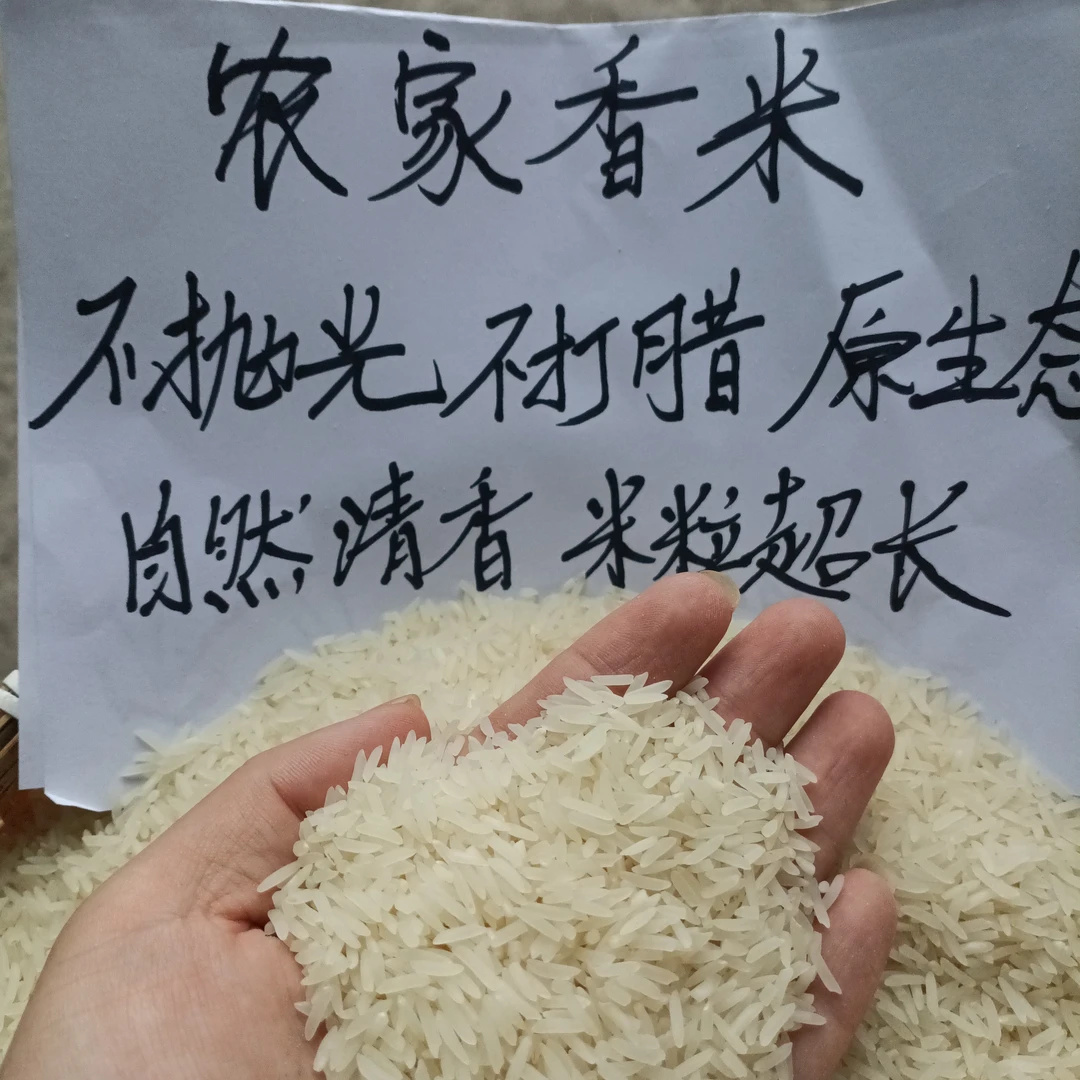 农家香米
不抛光 不打腊 原生态
自然清香 米粒超长